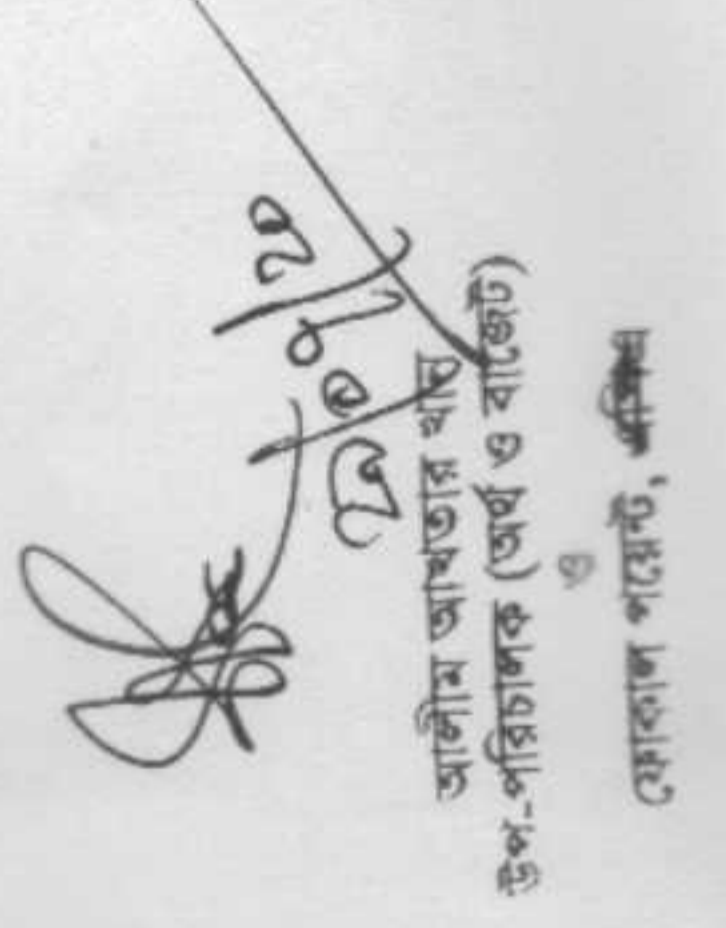 আলীম আখতার খান
উপ-পরিচালক (অর্থ ও বাজেট)
ও
ফোকাল পয়েন্ট,